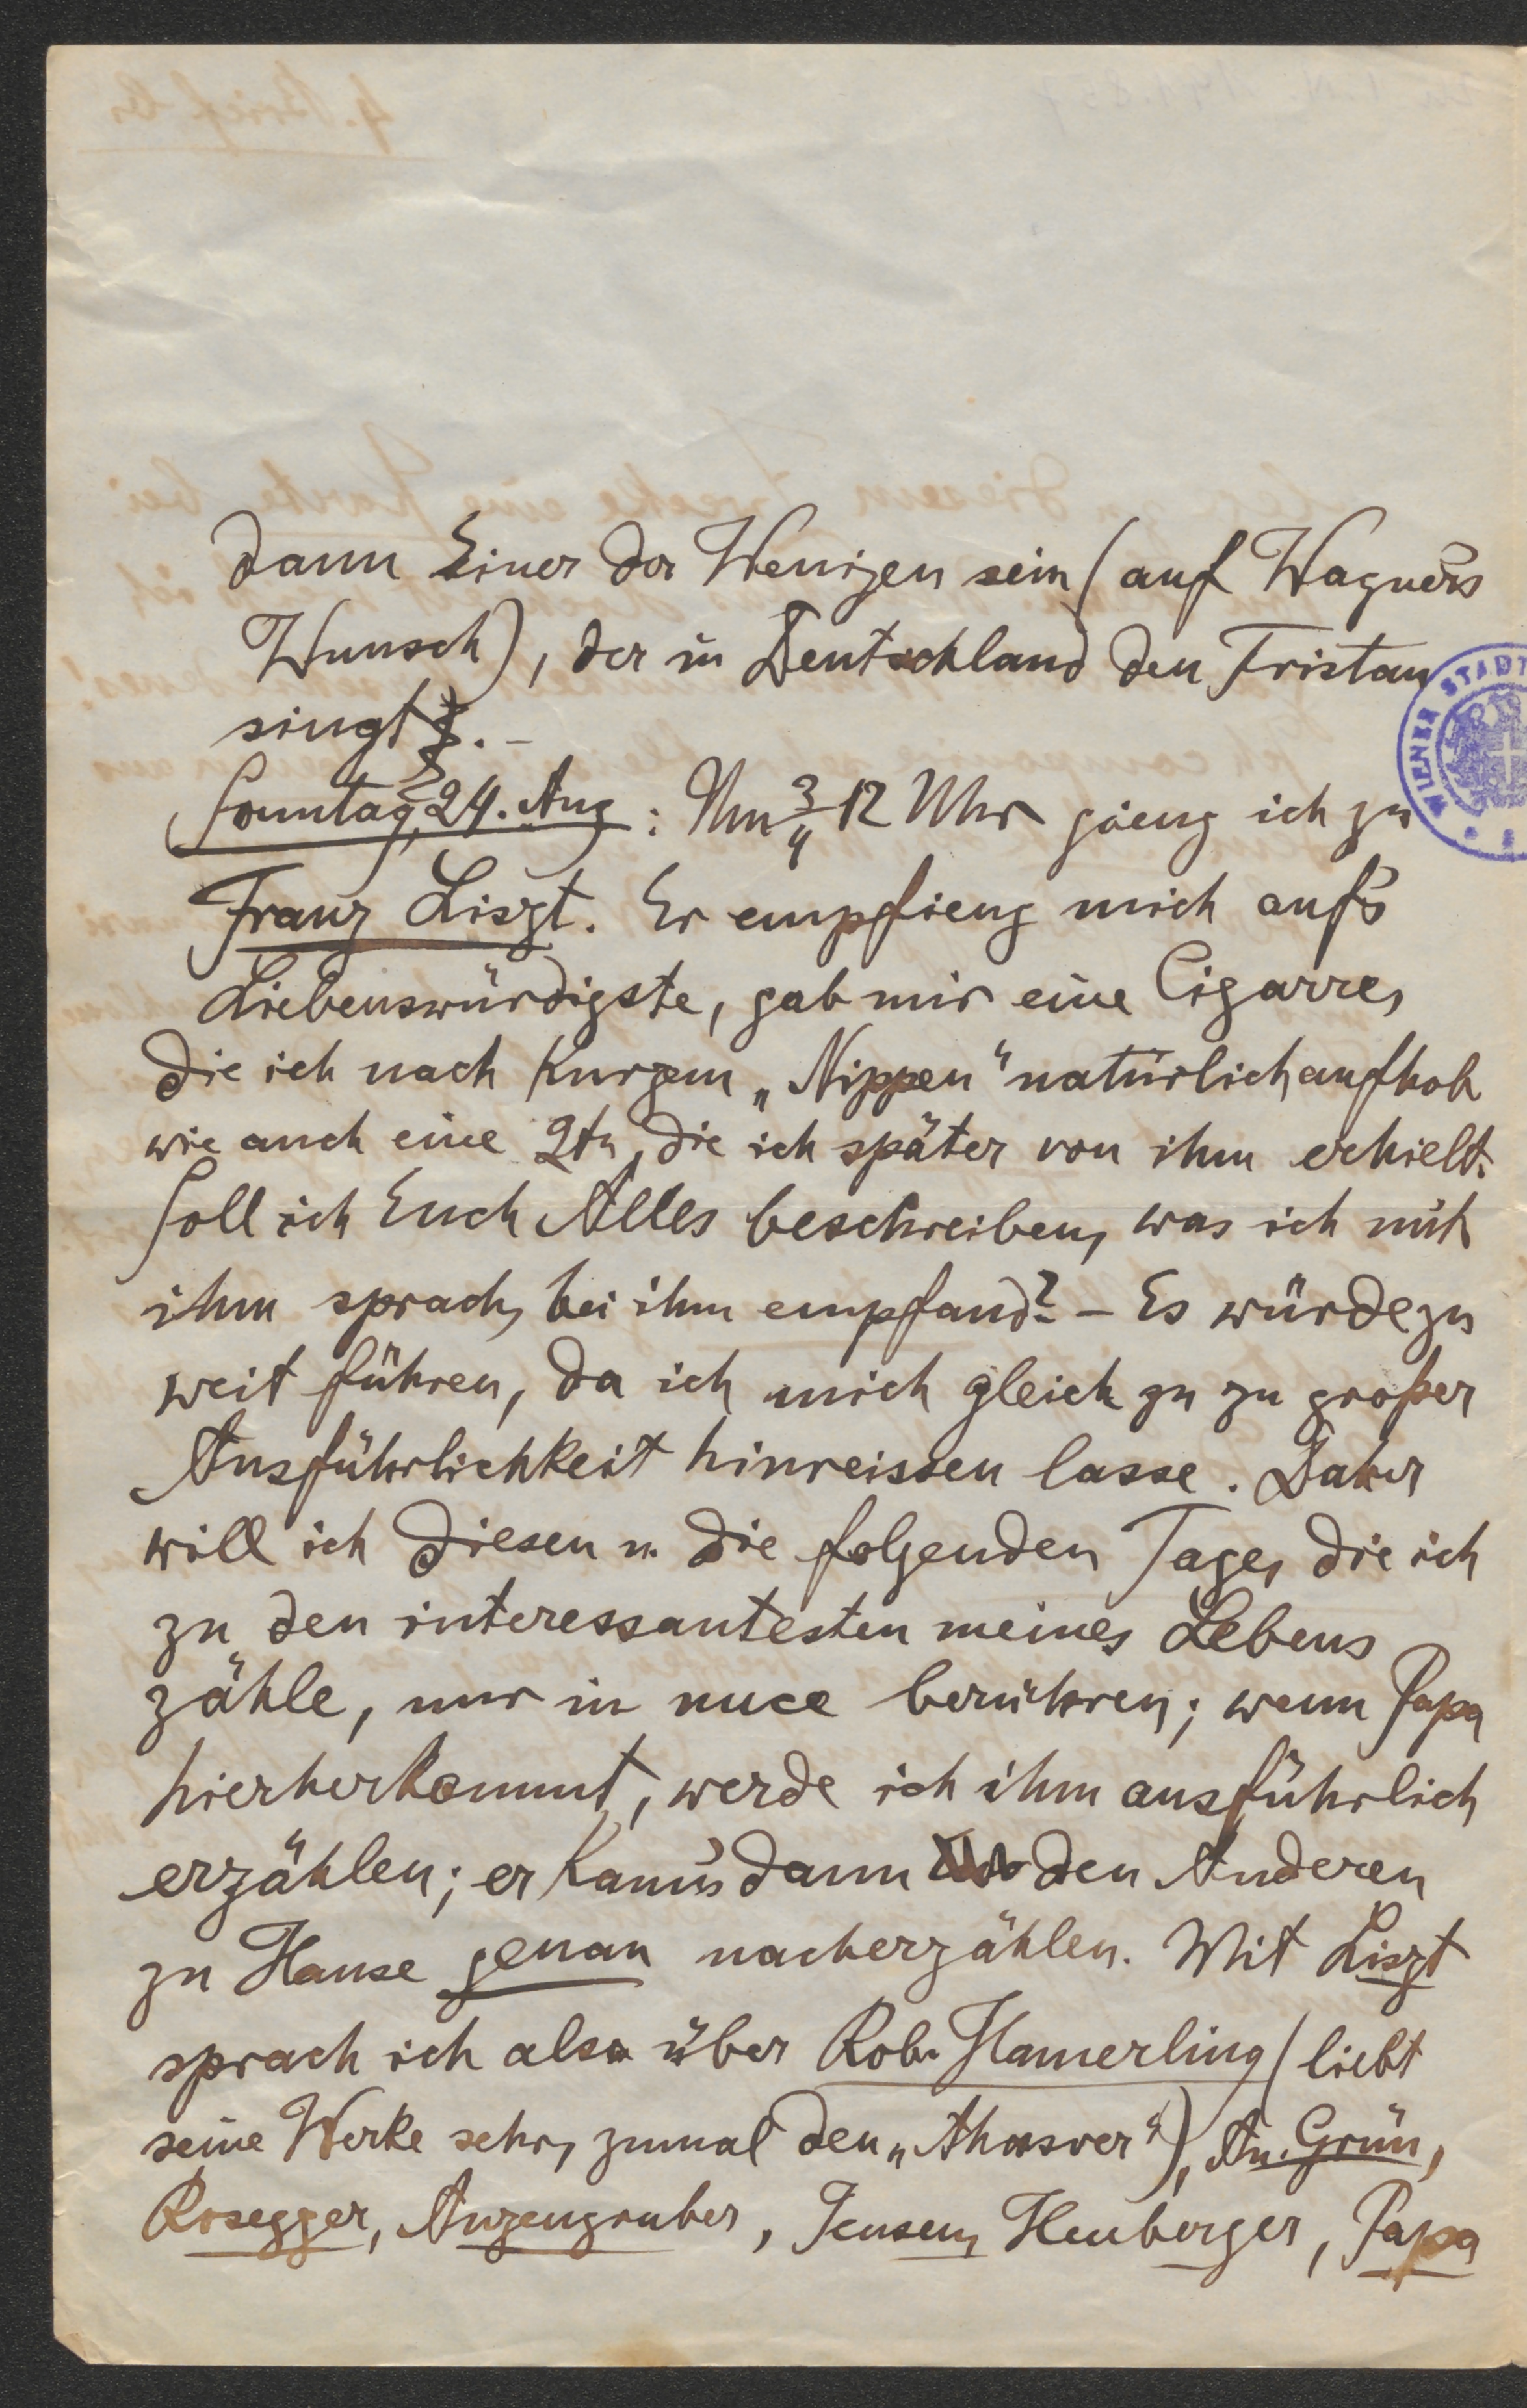 dann Einer der Wenigen sein (auf Wagner's
Wunsch), der in Deutschland den Tristan
singt.–
Sonntag, 24. Aug: Um 3/4 12 Uhr gieng ich zu
Franz Liszt. Er empfieng mich auf's
Liebenswürdigste, gab mir eine Cigarre,
die ich nach kurzem „Nippen" natürlich aufhob
wie auch eine 2te, die ich später von ihm erhielt.
Soll ich Euch Alles beschreiben, was ich mit
ihm sprach, bei ihm empfand? – Es würde zu
weit führen, da ich mich gleich zu zu großer
Ausführlichkeit hinreissen lasse. Daher
will ich diesen u. die folgenden Tage, die ich
zu den interessantesten meines Lebens
zähle, nur in nuce berühren; wenn Papa
hierherkommt, werde ich ihm ausführlich
erzählen; er kann's dann den Anderen
zu Hause genau nacherzählen. Mit Liszt
sprach ich also über Rob. Hamerling (liebt
seine Werke sehr, zumal den „Ahasver"), An. Grün,
Rosegger, Anzengruber, Jensen, Heuberger, Papa
WIENER STADT